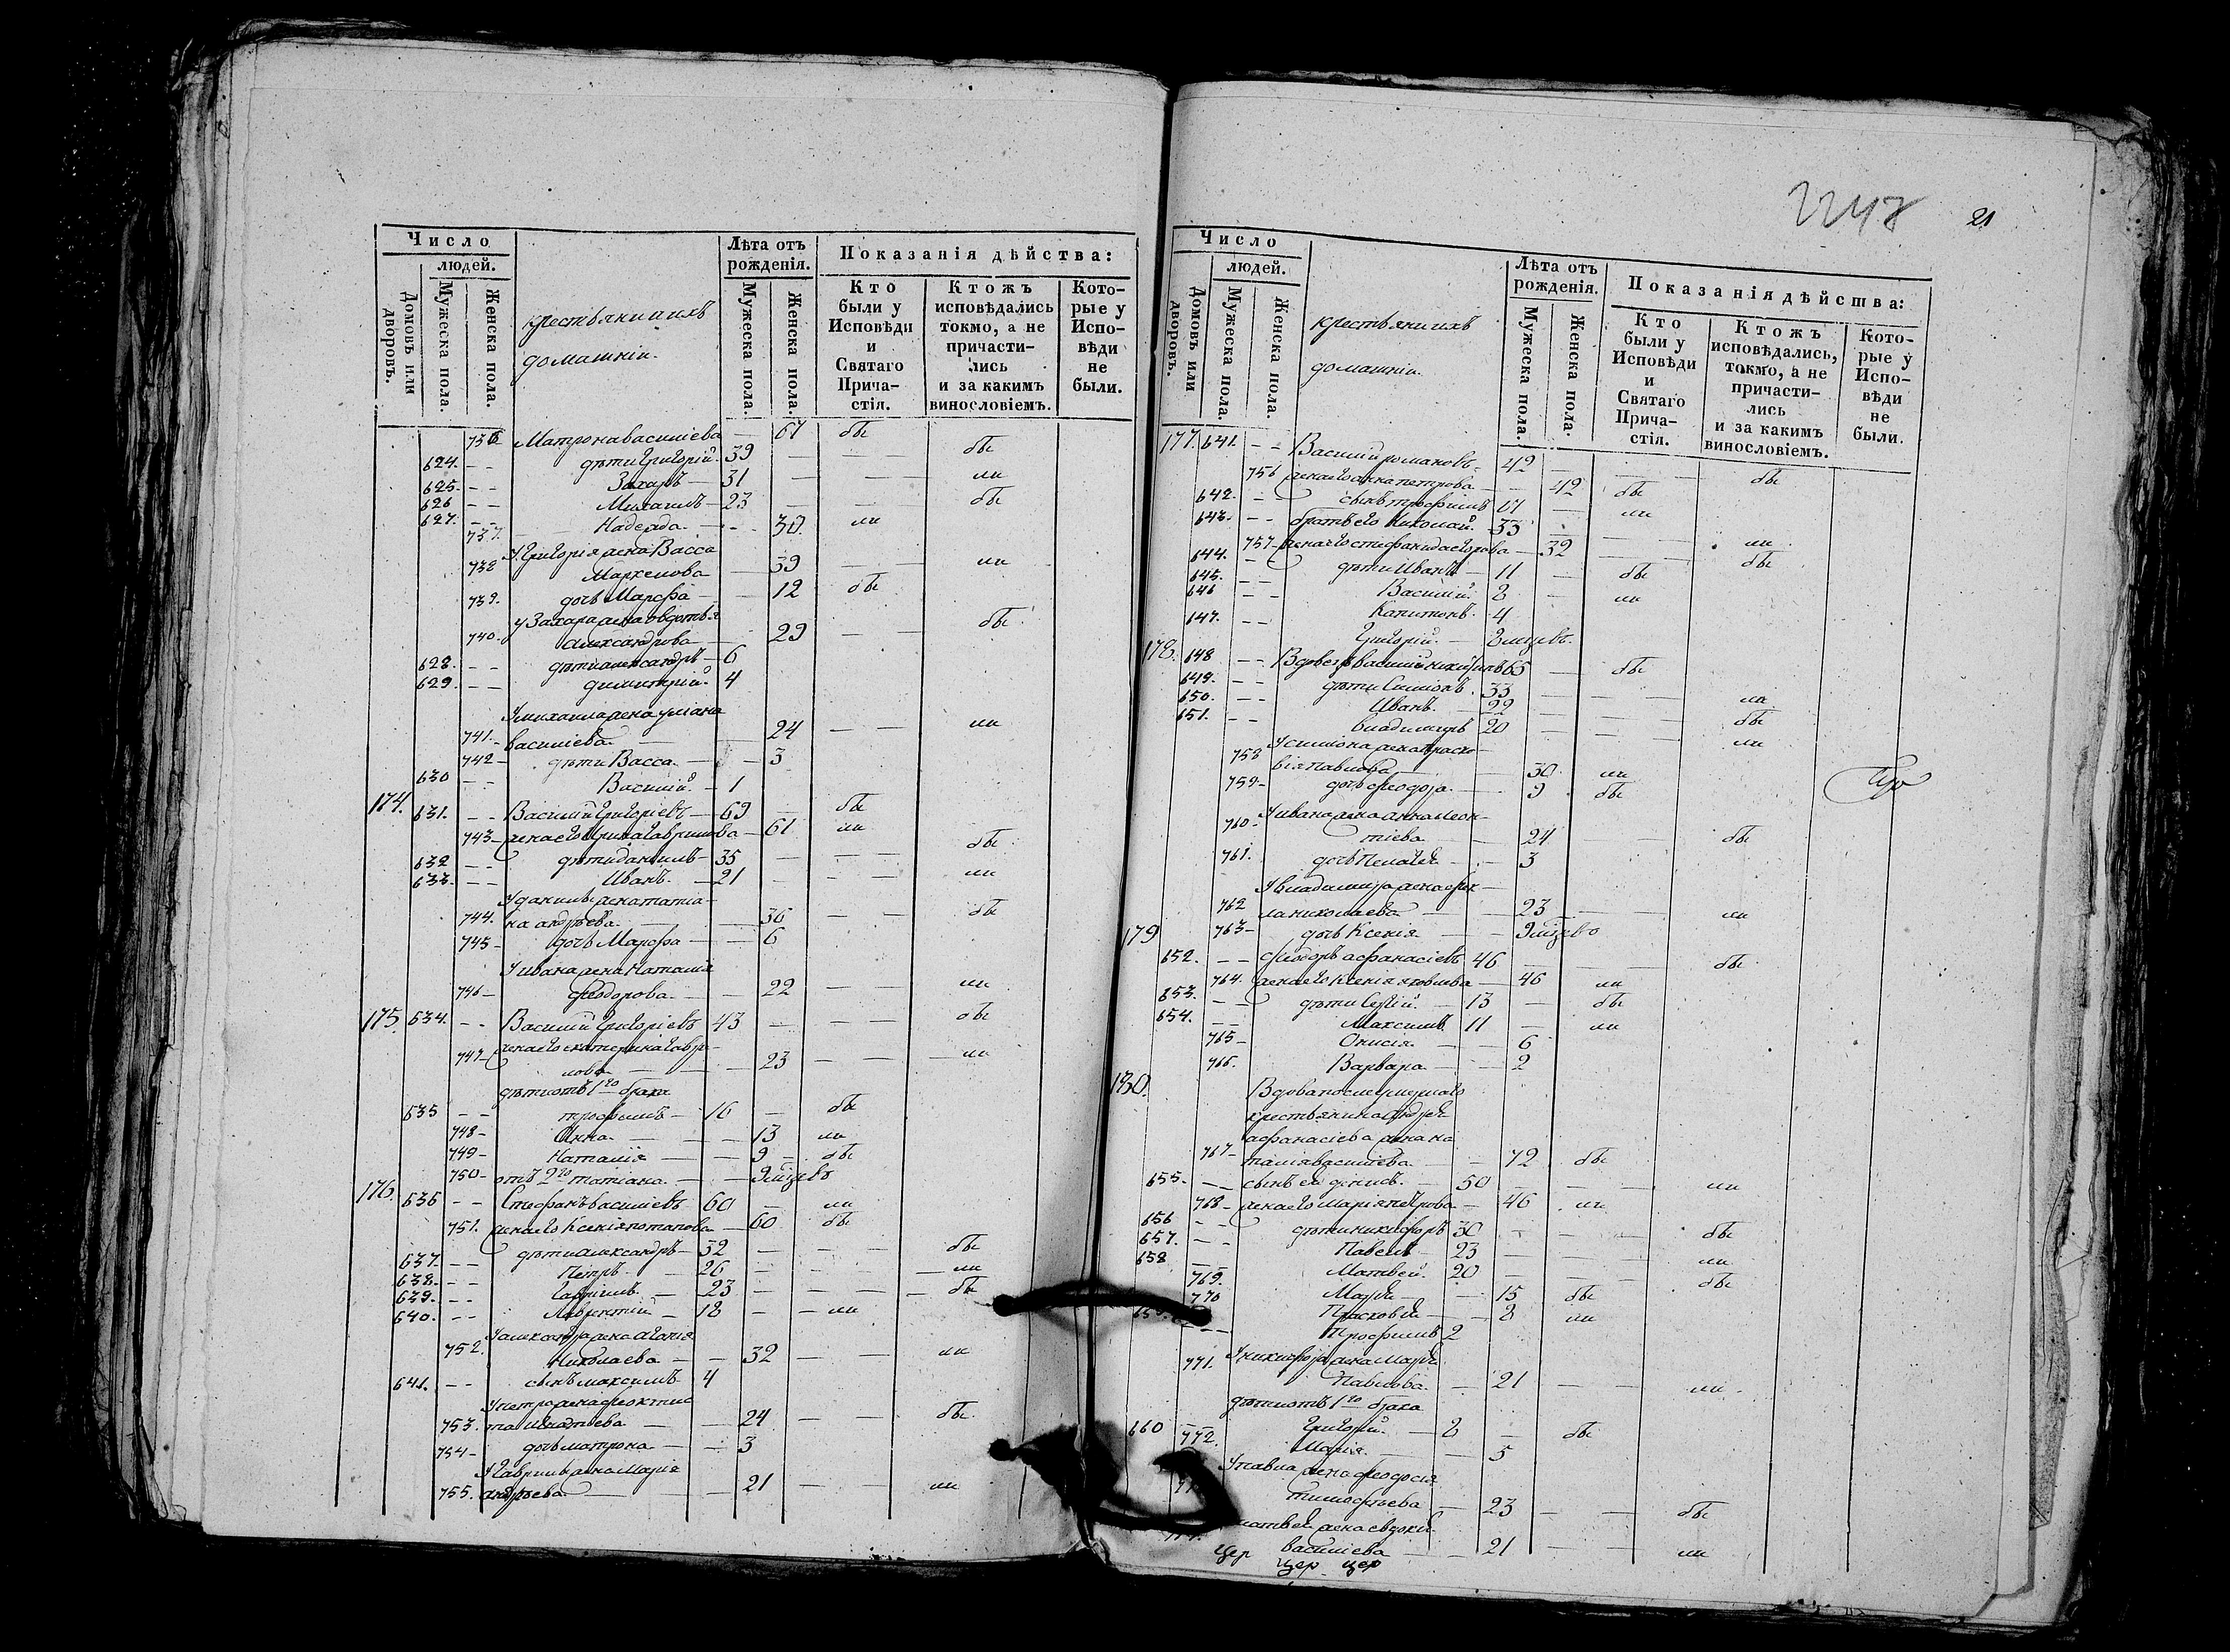 2248
21
Число
людей.
Домовъ или дворовъ.
Мужеска пола.
Женска пола.
крестьяни и ихъ
домашніи.
Лѣта отъ
рожденія.
Мужеска пола.
Женска пола.
Показанія дѣйства:
Кто
были у
Исповѣди
и
Святаго
Прича-
стія.
Ктожъ
исповѣдались
токмо, а не
причасти-
лись
и за какимъ
винословіемъ.
Кото-
рые у
Испо-
вѣди
не
были.
736 Матрона василіева — 67 бы
624. - - дѣти Григорій. 39 — — бы
625. - - Захаръ — 31 — — ли
626 - - Михаилъ — 23 — — бы
627. - -
737. Надежда. — 30. ли
У Григорія жена Васса
738 — 39 — — ли
739. дочь Марѳа — — 12 бы
у Захара жена Овдотья
740. александрова — 29 — — бы
628. - - дѣти александръ — 6
629. - - димитрій. 4
У михаила жена уліана
741. василіева. — 24 — — ли
742 — дѣти Васса. — 3
630 - - Василій. — 1
174. 631. - - Василій Григоріевъ — 69 — бы
743 — жена его Ирина Гавриилова — 61 ли
632 - - дѣти даніилъ — 35 — — бы
633. - - Иванъ. — 21 — — ли
У даніила жена татіа-
744. на андреева. — 36 — — бы
745 — дочь Марѳа — — 6
У ивана жена Наталія
746 — Ѳеодорова. — — 22 — — ли
175. 634. - - Василій Григоріевъ 43 — — бы
747 — жена его екатерина Гаври-
лова — — 23 — — ли
дѣти отъ 1го брака
635 - - трофимъ — 16 — бы
748 — Анна. — — 13 ли
749 — Наталія — — 9 — бы
750 — отъ 2го татіана. — — 9 мѣсцевъ
176. 636 - - Стефанъ василіевъ 60 — ли
751. жена его Ксенія потапова — 60 бы
637. - - дѣти александръ — 32 — — бы
638. - - Петръ. — 26 — — ли
639. - - Гавріилъ. — 23 — — бы
640. - - Лаврентій — 18 — — ли
У александра жена Агапія
752. Николаева — — 32 — — ли
641. - - сынъ максимъ 4
У петра жена Ѳеоктис
753. та Игнатіева — 24 — — бы
754 — дочь матрона — — 3
У Гавриилы жена Марія
755. андреева — — 21 — — ли
Число
людей.
Домовъ или дворовъ.
Мужеска пола.
Женска пола.
крестьяни ихъ
домашніи.
Лѣта отъ
рожденія.
Мужеска пола.
Женска пола.
Показанія дѣйства:
Кто
были у
Исповѣди
и
Святаго
Прича-
стія.
Ктожъ
исповѣдались,
токмо, а не
причасти-
лись
и за какимъ
винословіемъ.
Кото-
рые у
Испо-
вѣди
не
были.
177. 641. - - Василій романовъ. 42 — — бы
756 жена его анна петрова — 42 бы
642. - - сынъ трофимъ 17 — ли
643. - - братъ его Николай. 33 — — ли
757 — жена его стефанида егорова — 32 — — бы
644. - - дѣти Иванъ — 11 — бы
645. - - Василій. 8 — ли
646 - - Капитонъ. 4
147. - - Григорій. — 8 мѣсцевъ.
178. 648 - - Вдовецъ василій никитинъ 65 — бы
649. - - дѣти Симіонъ. 33 — — ли
650. - - Иванъ. 22 — — бы
651. - - владимиръ 20 — — ли
У симіона жена праско-
758 вія павлова — 30. ли
759 — дочь ѳеодора. — 9 бы
У ивана жена анна леон-
760 — тіева — 24 — — бы
761. дочь Пелагея — — 3
762 ла николаева — — 23 — — ли
179 763 — дочь Ксенія — — 9 мѣсцево
652. - - Ѳеодоръ аѳанасіевъ 46 — — бы
764. жена его Ксенія яковлева — 46 ли
653. - - дѣти Сергій. — 13 — бы
654. - - Максимъ 11 — ли
765 — Онисія. — — 6
766. Варвара — — 2
180. Вдова после умершаго
крестьянина Андрея
аѳанасіева жена на
767 — талія василіева — — 72 бы
655. - - сынъ ея денисъ. — 50 — — ли
768 — жена его марія петрова — 46 ли
656 - - дѣти никифоръ 30 — — бы
657. - - Павелъ — 23 — — ли
658 — Матвей. 20 — — бы
769. — — 15 бы
770 Прасковья — — 8 ли
659. - - Трофимъ 2
У никифора жена
771. Павлова. — 21 — — ли
дѣти отъ 1го брака
660 Григорій. — 8 — бы
772. Марія. — — 5
У павла жена Ѳеодосія
тимоѳеева — 23 — — бы
матвея жена евдокія
василіева — — 21 — — ли
цер цер цер